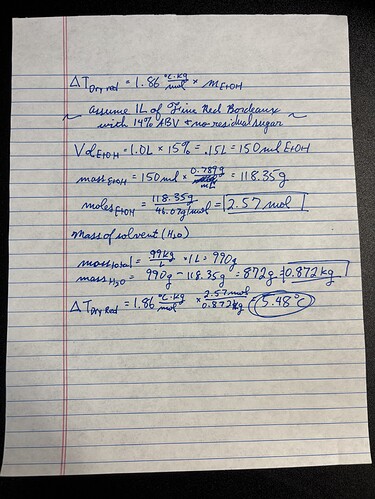 ΔT Dry red = 1.86 °C·kg/mol × m EtOH
~ Assume 1L of Fine Red Bordeaux ~
with 14% ABV & no residual sugar
Vol EtOH = 1.0L × 15% = .15L = 150 ml EtOH
mass EtOH = 150 ml × 0.789g/mL = 118.35g
moles EtOH = 118.35g / 46.07g/mol = 2.57 mol
Mass of solvent (H2O)
mass total = .99kg/L * 1L = 990g
mass H2O = 990g - 118.35g = 872g = 0.872 kg
ΔT Dry Red = 1.86 °C·kg/mol × 2.57 mol / 0.872kg = 5.48°C